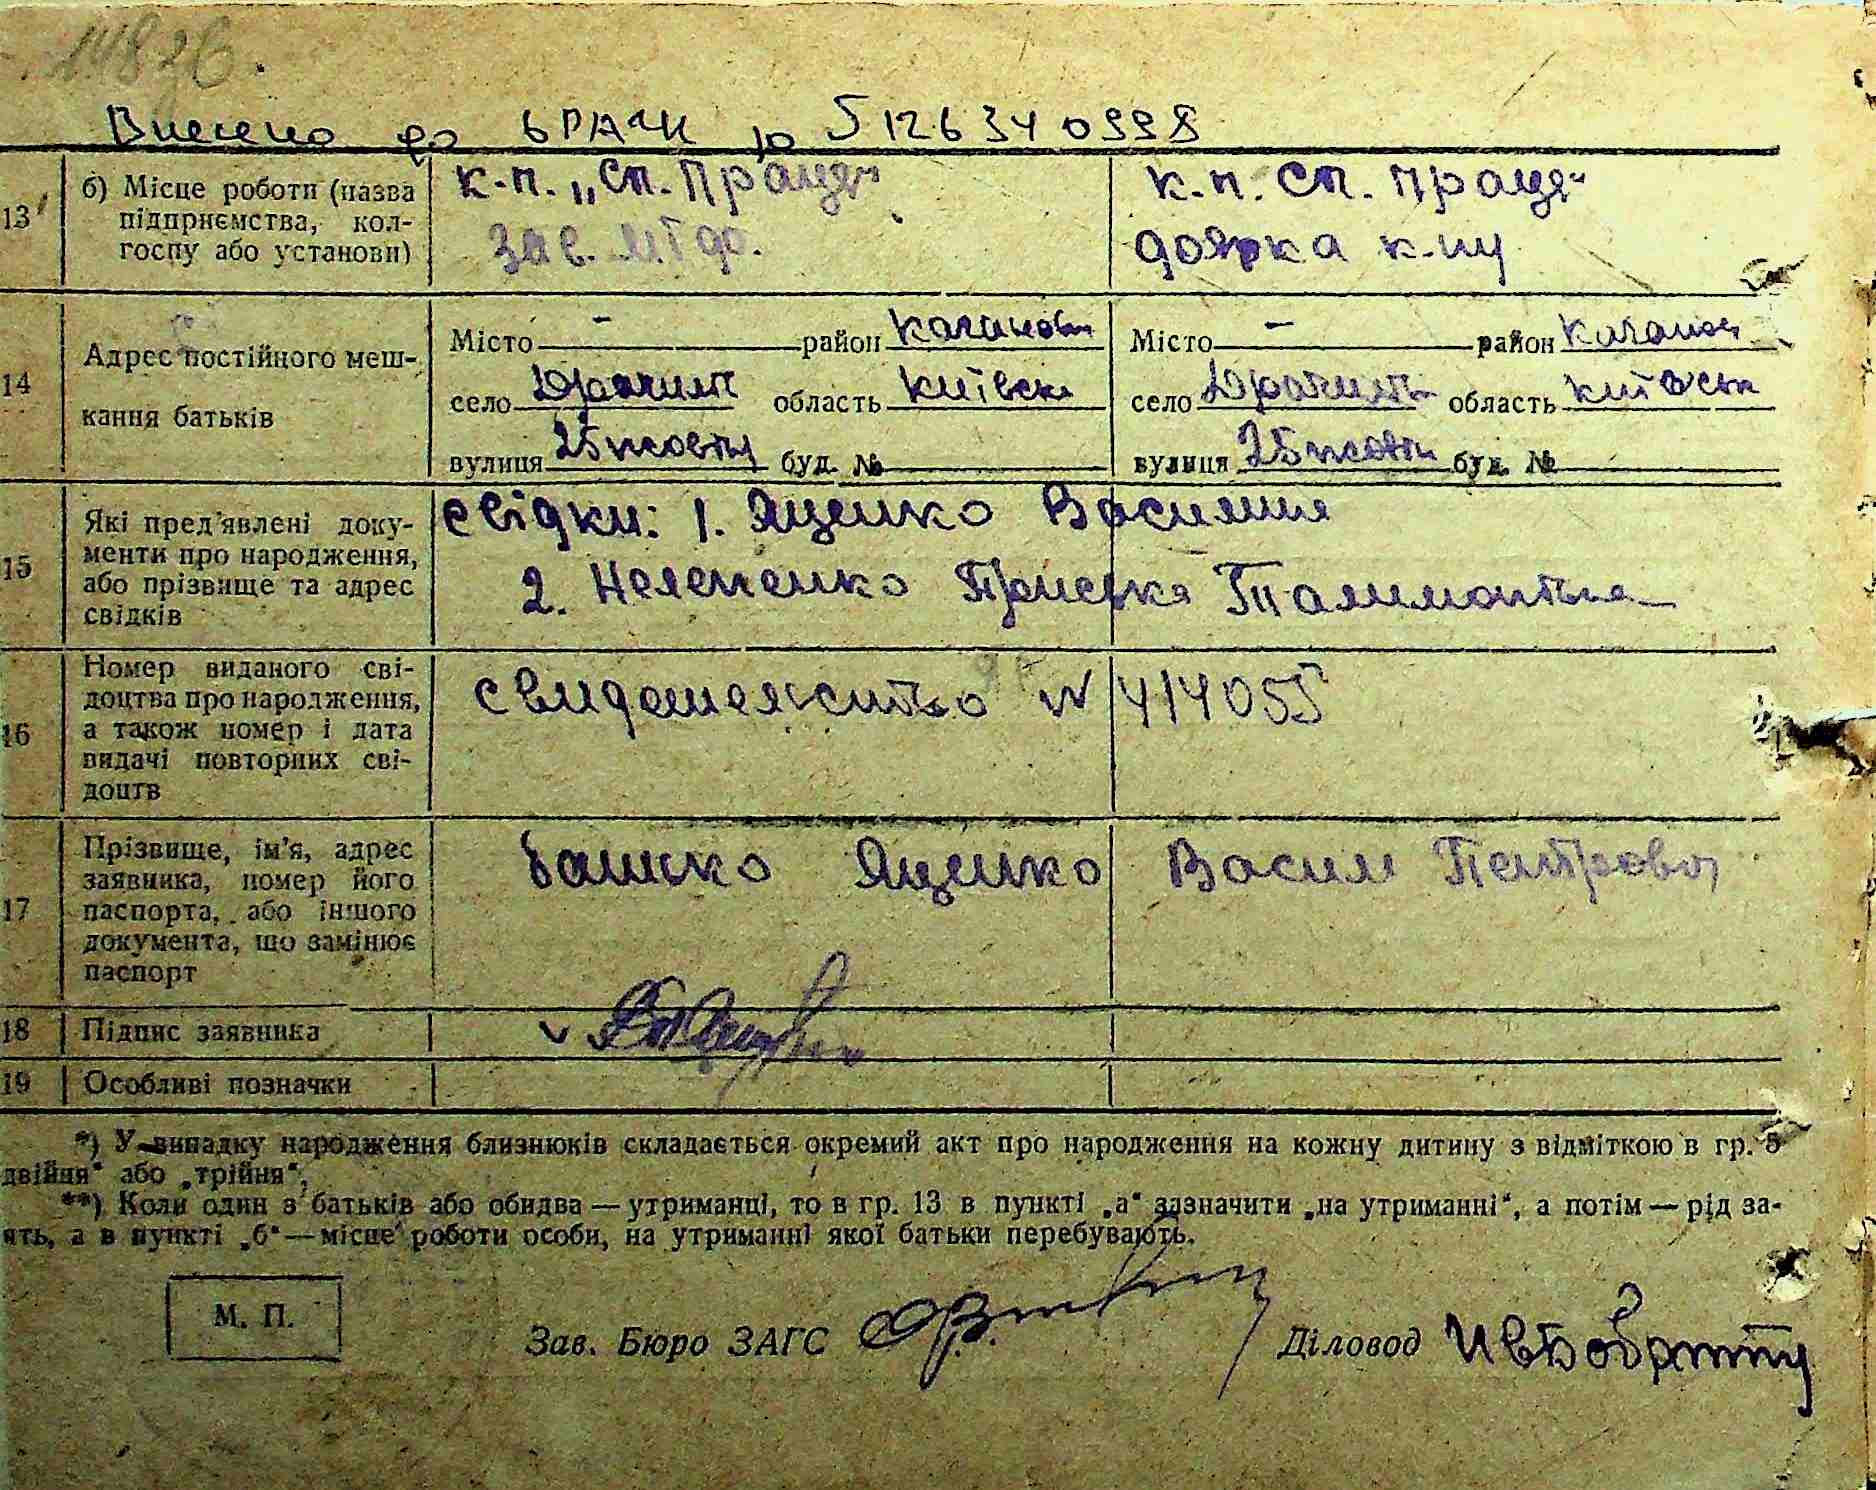 Внесено до ЬРАЧК ю 5126340998
13 б) Місце роботи (назва підприємства, колгоспу або установи)
к.п. „Сп. Праця" зав. МТФ.
к.п. Сп. Праця" доярка к-пу
14 Адрес постійного мешкання батьків
Місто – район Каганов Місто – район Каганов
село область Київськ село область Київськ
вулиця 25 жовтн буд. № вулиця 25 жовтн буд. №
15 Які пред'явлені документи про народження, або прізвище та адрес свідків
Свідки: 1. Яценко
2. Нелепенко Пріська
16 Номер виданого свідоцтва про народження, а також номер і дата видачі повторних свідоцтв
N 414055
17 Прізвище, ім'я, адрес заявника, номер його паспорта, або іншого документа, що замінює паспорт
батько Яценко Васил Петрович
18 Підпис заявника
19 Особливі позначки
*) У випадку народження близнюків складається окремий акт про народження на кожну дитину з відміткою в гр. 5
двійня" або „трійня".
**) Коли один з батьків або обидва — утриманці, то в гр. 13 в пункті „а" зазначити „на утриманні", а потім — рід за-
ять, а в пункті „б" — місце роботи особи, на утриманні якої батьки перебувають.
М. П.
Зав. Бюро ЗАГС Діловод